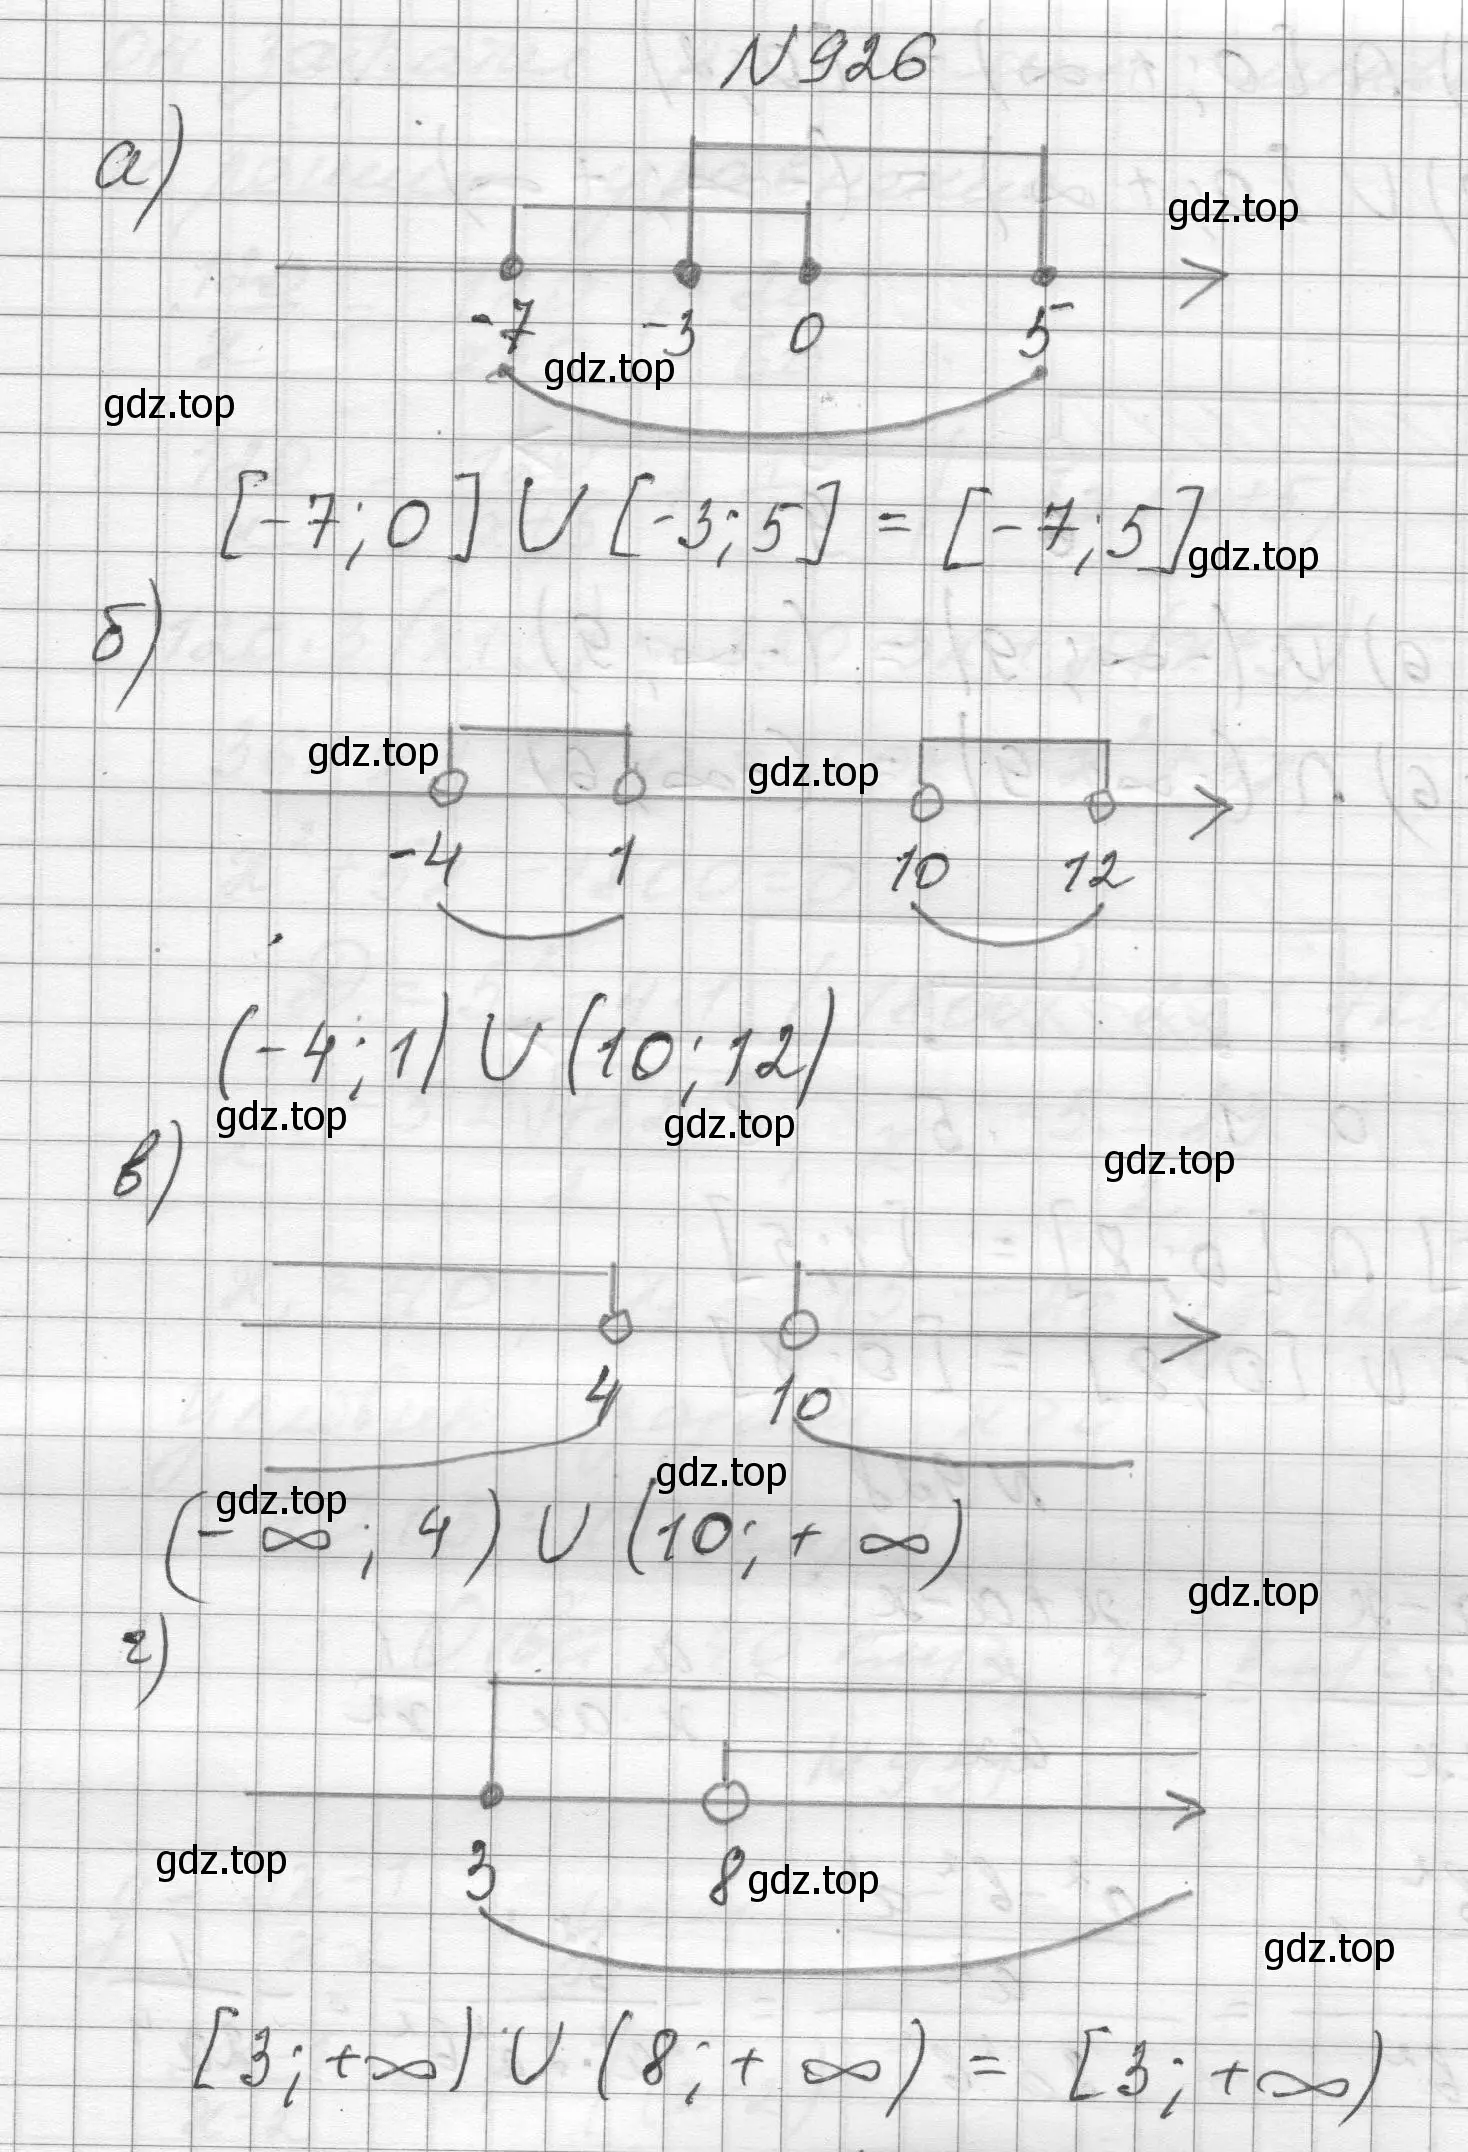 N 926
а)
gdz.top
-7 -3 0 5
gdz.top
gdz.top
[-7; 0] ∪ [-3; 5] = [-7; 5]
gdz.top
б)
gdz.top
gdz.top
-4 1 10 12
(-4; 1) ∪ (10; 12)
gdz.top
gdz.top
gdz.top
в)
4 10
gdz.top
gdz.top
(-∞; 4) ∪ (10; +∞)
gdz.top
г)
gdz.top
3 8
gdz.top
gdz.top
[3; +∞) ∪ (8; +∞) = [3; +∞)